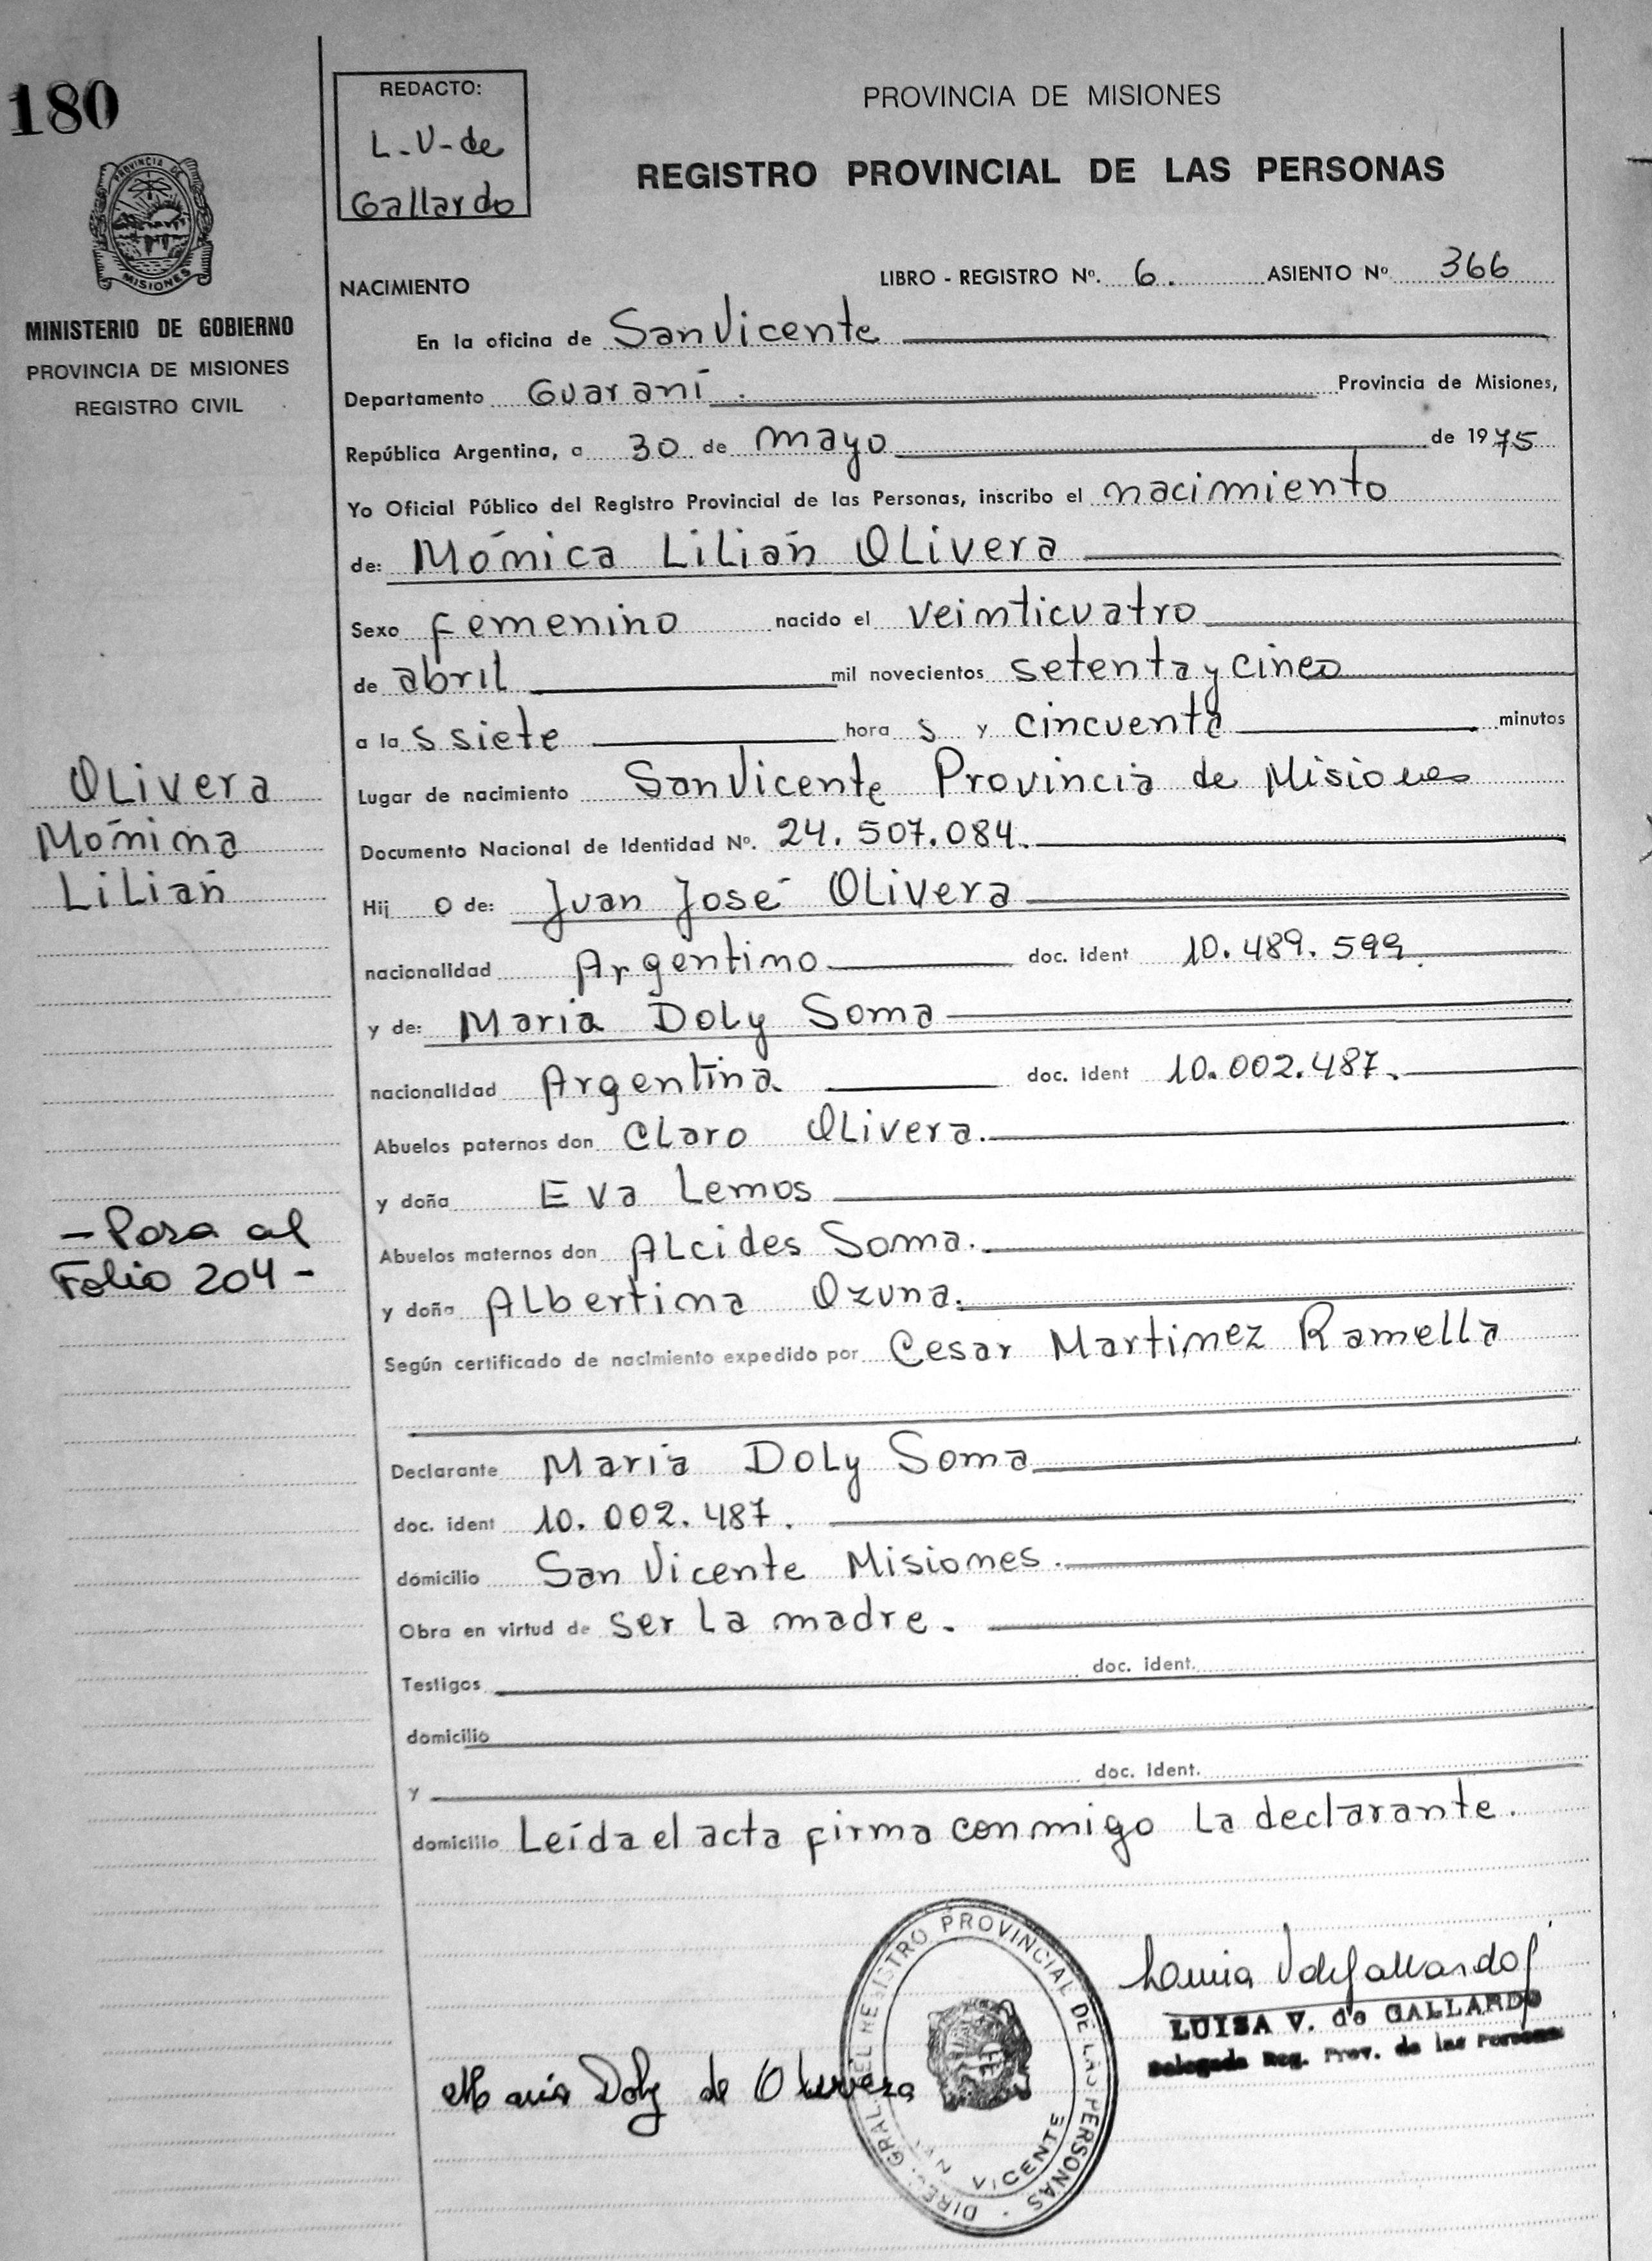 180
PROVINCIA DE
MISIONES
MINISTERIO DE GOBIERNO
PROVINCIA DE MISIONES
REGISTRO CIVIL
REDACTO:
L-V-de
Gallardo
PROVINCIA DE MISIONES
REGISTRO PROVINCIAL DE LAS PERSONAS
NACIMIENTO LIBRO - REGISTRO Nº. 6. ASIENTO Nº 366
En la oficina de San Vicente
Departamento Guaraní. Provincia de Misiones,
República Argentina, a 30 de mayo de 1975
Yo Oficial Público del Registro Provincial de las Personas, inscribo el nacimiento
de: Mónica Lilian Olivera
Sexo femenino nacido el veinticuatro
de abril mil novecientos setenta y cinco
a las siete horas y cincuenta minutos
Lugar de nacimiento San Vicente Provincia de Misiones
Documento Nacional de Identidad Nº. 24.507.084.
Hijo de: Juan José Olivera
nacionalidad Argentino doc. ident 10.489.599.
y de: Maria Doly Soma
nacionalidad Argentina doc. ident 10.002.487.
Abuelos paternos don Claro Olivera.
y doña Eva Lemos
Abuelos maternos don Alcides Soma.
y doña Albertina Ozuna.
Según certificado de nacimiento expedido por Cesar Martinez Ramella
Declarante Maria Doly Soma
doc. ident 10.002.487.
domicilio San Vicente Misiones.
Obra en virtud de ser la madre.
Testigos doc. ident.
domicilio
y doc. ident.
domicilio Leída el acta firma conmigo la declarante.
Olivera
Mónina
Lilian
- Pasa al
Folio 204 -
Maria Doly de Olivera
DIREC. GRAL. DEL REGISTRO PROVINCIAL DE LAS PERSONAS
SAN VICENTE
Luisa V de Gallardo
LUISA V. de GALLARDO
Delegada Reg. Prov. de las Personas